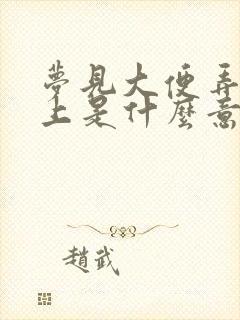 夢見大便弄
上是什麼意
趙武